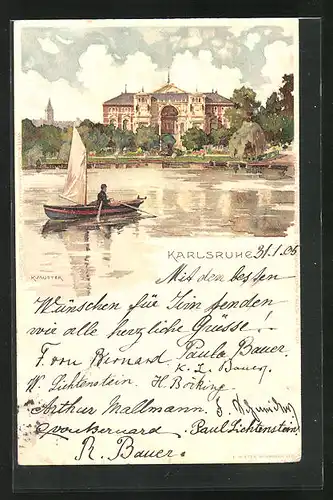 KARLSRUHE 31.1.05
K. MUTTER
Mit den besten
Wünschen für Sim senden
wir alle herzliche Grüsse!
F. von Bernard Paula Bauer.
K. L. Bauer
W. Lichtenstein. H. Böcking.
Arthur Mallmann.
von Bernard. Paul Lichtenstein
R. Bauer.